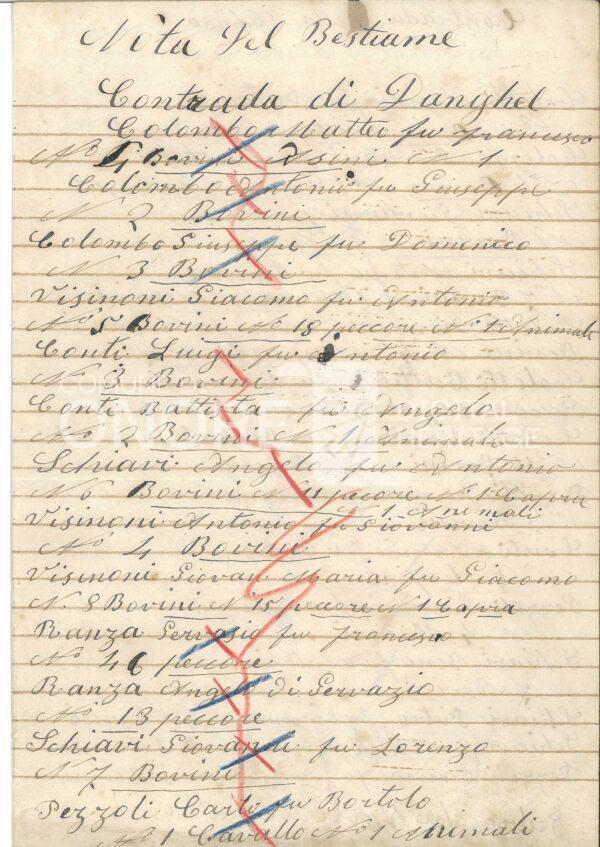 Nota Del Bestiame
Contrada di Danghel
Colombo Matteo fu Francesco
No 4 Bovini Asini N 1
Colombo Antonio fu Giuseppe
N 2 Bovini
Colombo Giuseppe fu Domenico
N 3 Bovini
Visinoni Giacomo fu Antonio
No 5 Bovini No 18 peccore No 1 Animali
Conti Luigi fu Antonio
N 3 Bovini
Conti Battista fu Angelo
No 2 Bovini N 1 Animali
Schiavi Angelo fu Antonio
N 6 Bovini N 11 peccore No 1 Capra
N 1 Animali
Visinoni Antonio fu Giovanni
No 4 Bovini
Visinoni Giovan Maria fu Giacomo
N. 8 Bovini No 15 peccore N 1 Capra
Ranza Gervasio fu Francesco
No 46 peccore
Ranza Angelo di Gervazio
No 13 peccore
Schiavi Giovanni fu Lorenzo
N 7 Bovini
Pezzoli Carlo fu Bortolo
No 1 Cavallo No 1 Animali